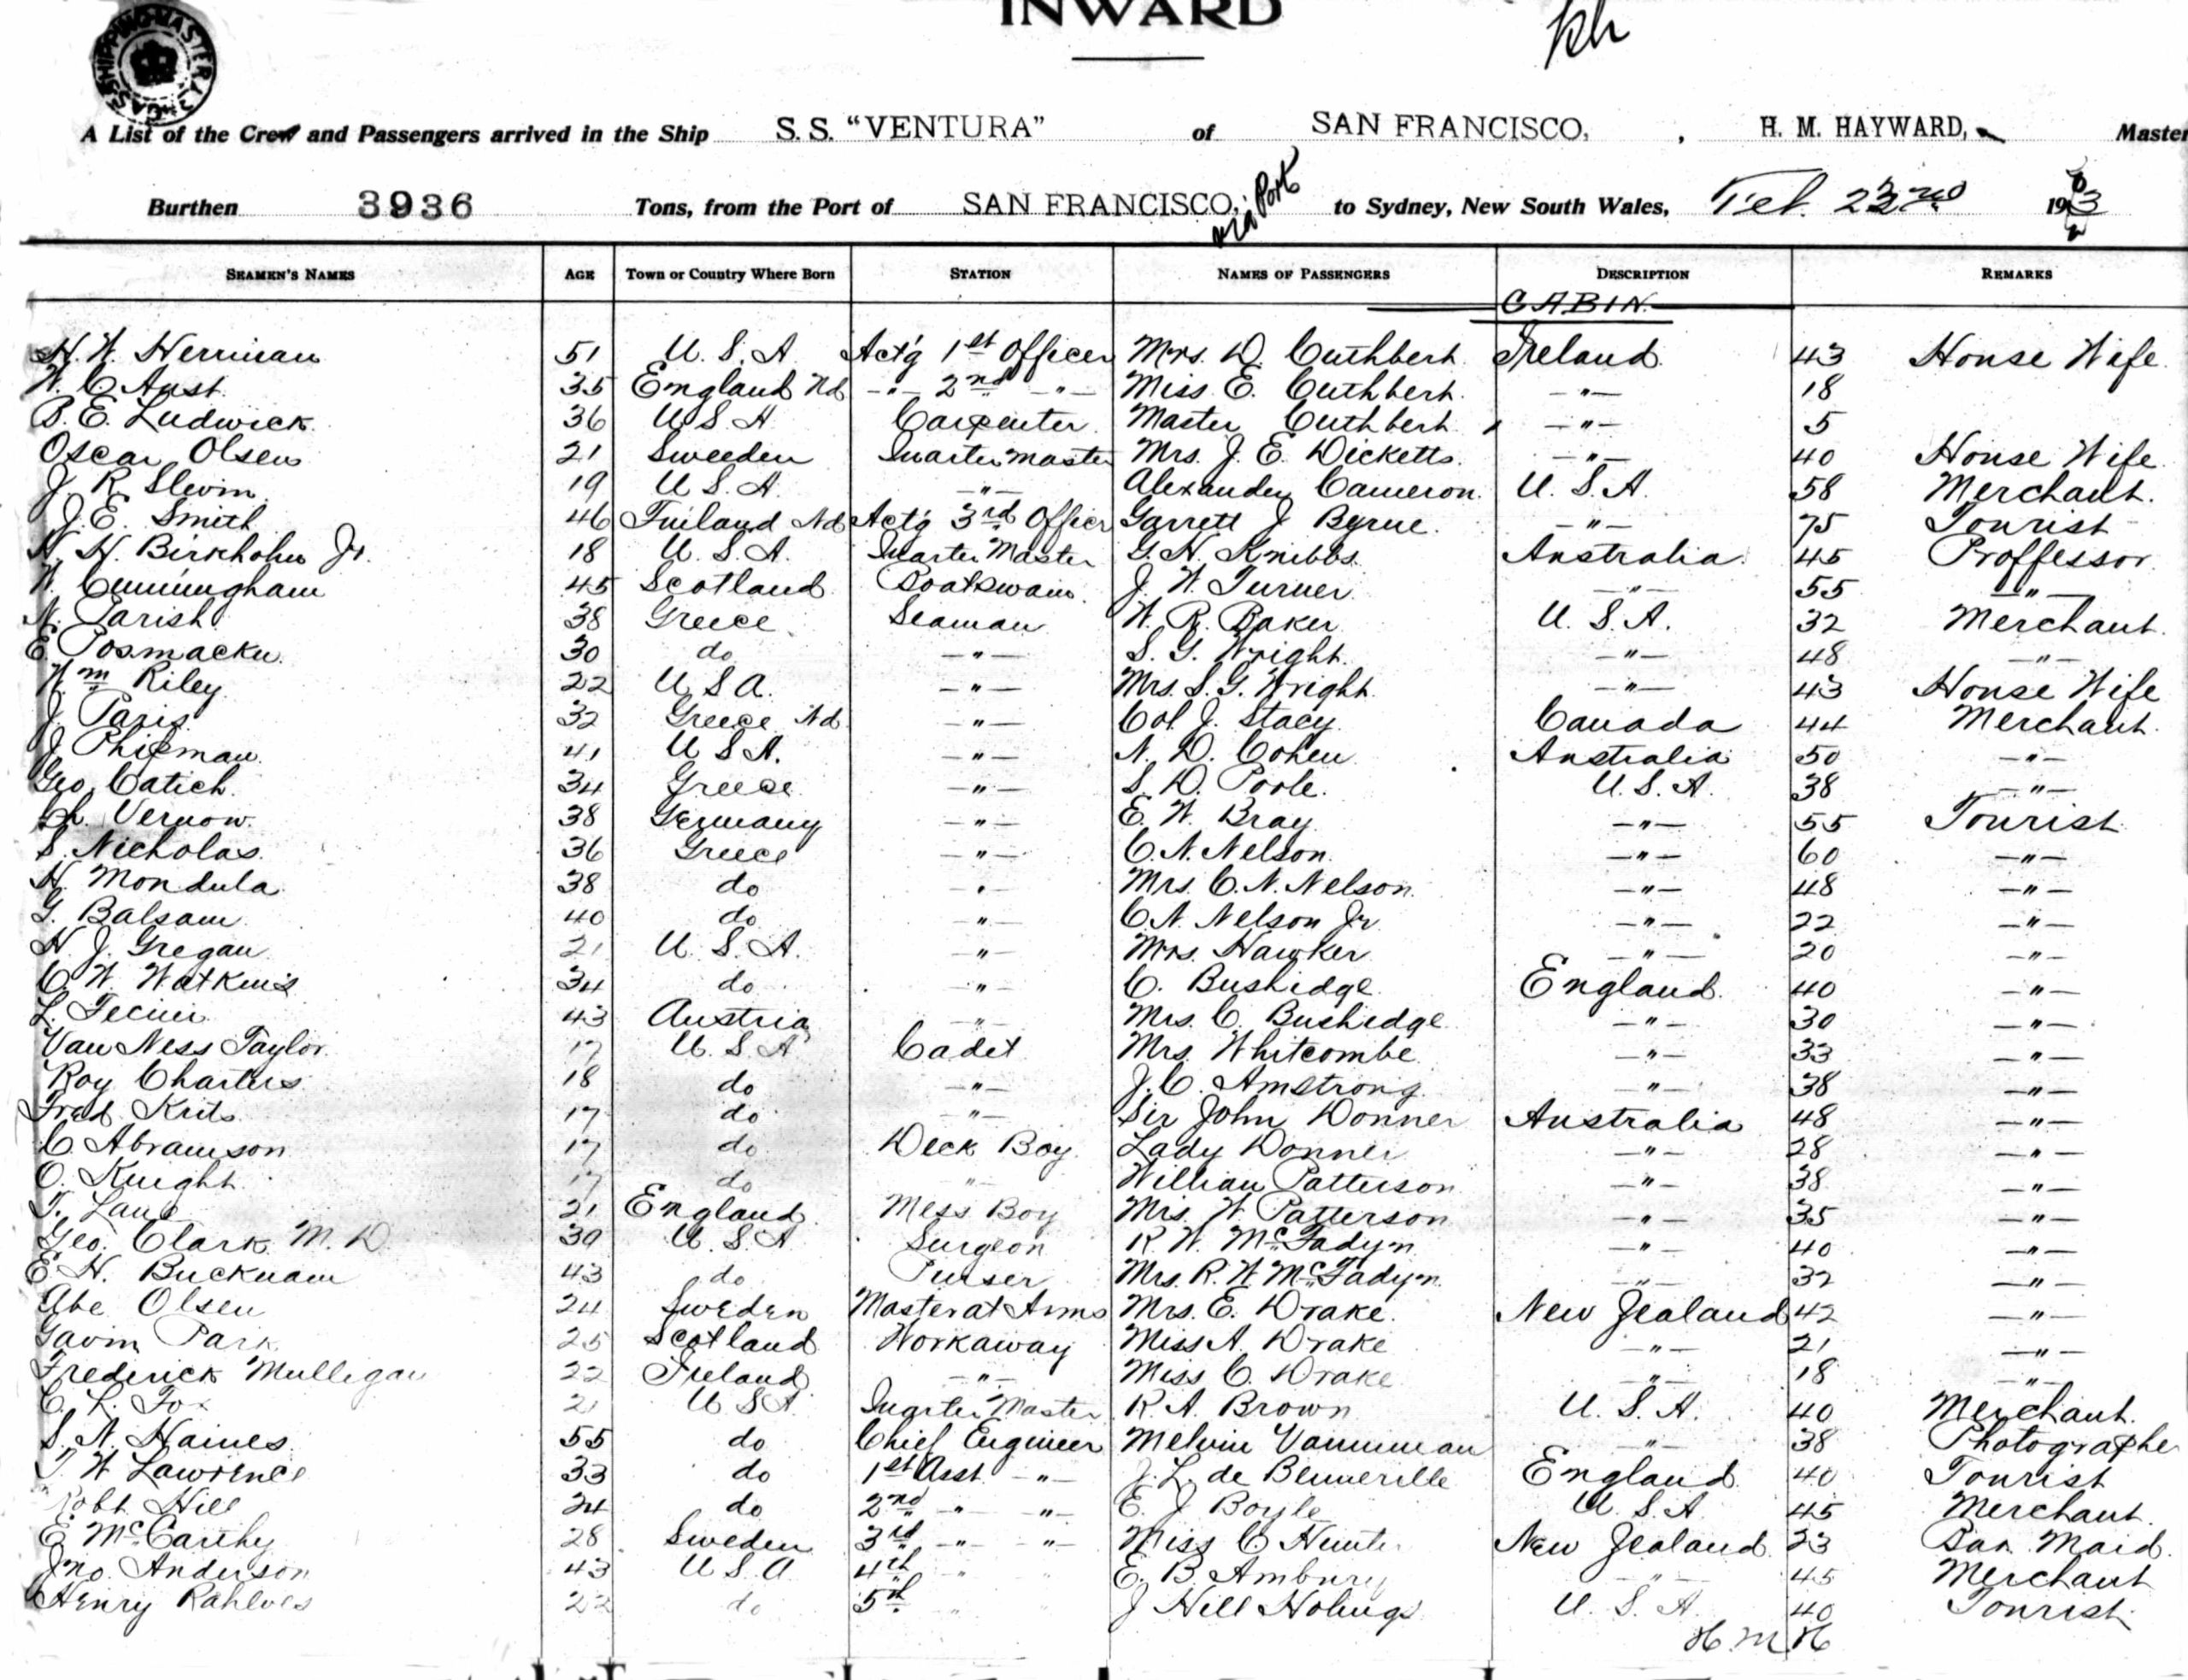 INWARD
A List of the Crew and Passengers arrived in the Ship S. S. "VENTURA" of SAN FRANCISCO, , H. M. HAYWARD, Master
Burthen 3936 Tons, from the Port of SAN FRANCISCO, via Port to Sydney, New South Wales, Feb. 23rd 1903
SEAMEN'S NAMES AGE Town or Country Where Born STATION NAMES OF PASSENGERS DESCRIPTION REMARKS
CABIN
H. W. Herriman 51 U. S. A Act'g 1st Officer Mrs. D. Cuthbert. Ireland. 43 House Wife.
W. C. Aust. 35 England Nd -"- 2nd -"- Miss E. Cuthbert. -"- 18
B. E. Ludwick. 36 U S A Carpenter. Master Cuthbert -"- 5
Oscar Olsen 21 Sweeden Quarter master Mrs. J. E. Dicketts. -"- 40 House Wife.
J R Slevin. 19 U S. A. -"- Alexander Cameron. U. S. A. 58 Merchant.
J. E. Smith 46 Finland Nd Act'g 3rd Officer Garrett J Byrne. -"- 75 Tourist
H. H. Birkholm Jr. 18 U. S. A. Quarter Master G. H. Knibbs. Australia. 45 Proffessor.
W. Cunningham 45 Scotland Boatswain. J. W. Turner. -"- 55 -"-
N. Parish. 38 Greece Seaman W. R. Baker U. S. A. 32 Merchant.
E. 30 do -"- S. G. Wright. -"- 48 -"-
Wm Riley. 22 U S A. -"- Mrs. S. G. Wright. -"- 43 House Wife
J. Paris 32 Greece Nd. -"- Col. J. Stacy. Canada 44 Merchant.
J 41 U S A. -"- N. D. Cohen Australia 50 -"-
Geo. Catich. 34 Greece. -"- S. D. Poole. U. S. A. 38 -"-
Vernow. 38 Germany -"- E. W. Bray -"- 55 Tourist.
S. Nicholas. 36 Greece -"- C. N. Nelson. -"- 60 -"-
N Mondula. 38 do -"- Mrs. C. N. Nelson. -"- 48 -"-
G. Balsam. 40 do -"- C. N. Nelson Jr. -"- 22 -"-
H J. Gregan. 21 U. S. A. -"- Mrs. Hawker -"- 20 -"-
C W. Watkins. 34 do -"- C. Bushidge. England. 40 -"-
L. 43 Austria -"- Mrs. C. Bushedge. -"- 30 -"-
Van Ness Taylor. 17 U. S A Cadet Mrs. Whitcombe. -"- 33 -"-
Roy Charters. 18 do -"- J. C. Amstrong. -"- 38 -"-
Fred 17 do -"- Sir John Donner Australia 48 -"-
C Abramson 17 do Deck Boy. Lady Donner -"- 28 -"-
O. Knight. 17 do -"- William Patterson. -"- 38 -"-
T. Lane 21 England. Mess Boy Mrs. W. Patterson -"- 35 -"-
Geo. Clark. M. D 30 U. S. A Surgeon R. W. McFadyn. -"- 40 -"-
E H. Bucknam 43 do Purser Mrs. R. W. McFadyn. -"- 32 -"-
Abe Olsen 24 Sweden Master at Arms Mrs. E. Drake. New Zealand 42 -"-
Gavin Park. 25 Scotland Workaway Miss A. Drake -"- 21 -"-
Frederick Mulligan 22 Ireland -"- Miss C. Drake -"- 18 -"-
C. L. Fox 21 U S A Quarter Master R. A. Brown U. S. A. 40 Merchant.
S. N. Haines. 55 do Chief Engineer Melvin Vanniman -"- 38 Photographer
T. W Lawrence 33 do 1st Asst. -"- J. L. de England 40 Tourist
Robt Hill 24 do 2nd -"- -"- E. J Boyle U. S. A 45 Merchant.
E. McCarthy 28 Sweden 3rd -"- -"- Miss C. Hunter New Zealand. 23 Bar Maid.
Jno. Anderson 43 U S. A. 4th " " E. B. Ambury -"- 45 Merchant
Henry Rahlves 22 do 5th " " J Hill U. S. A. 40 Tourist.
H. M. H